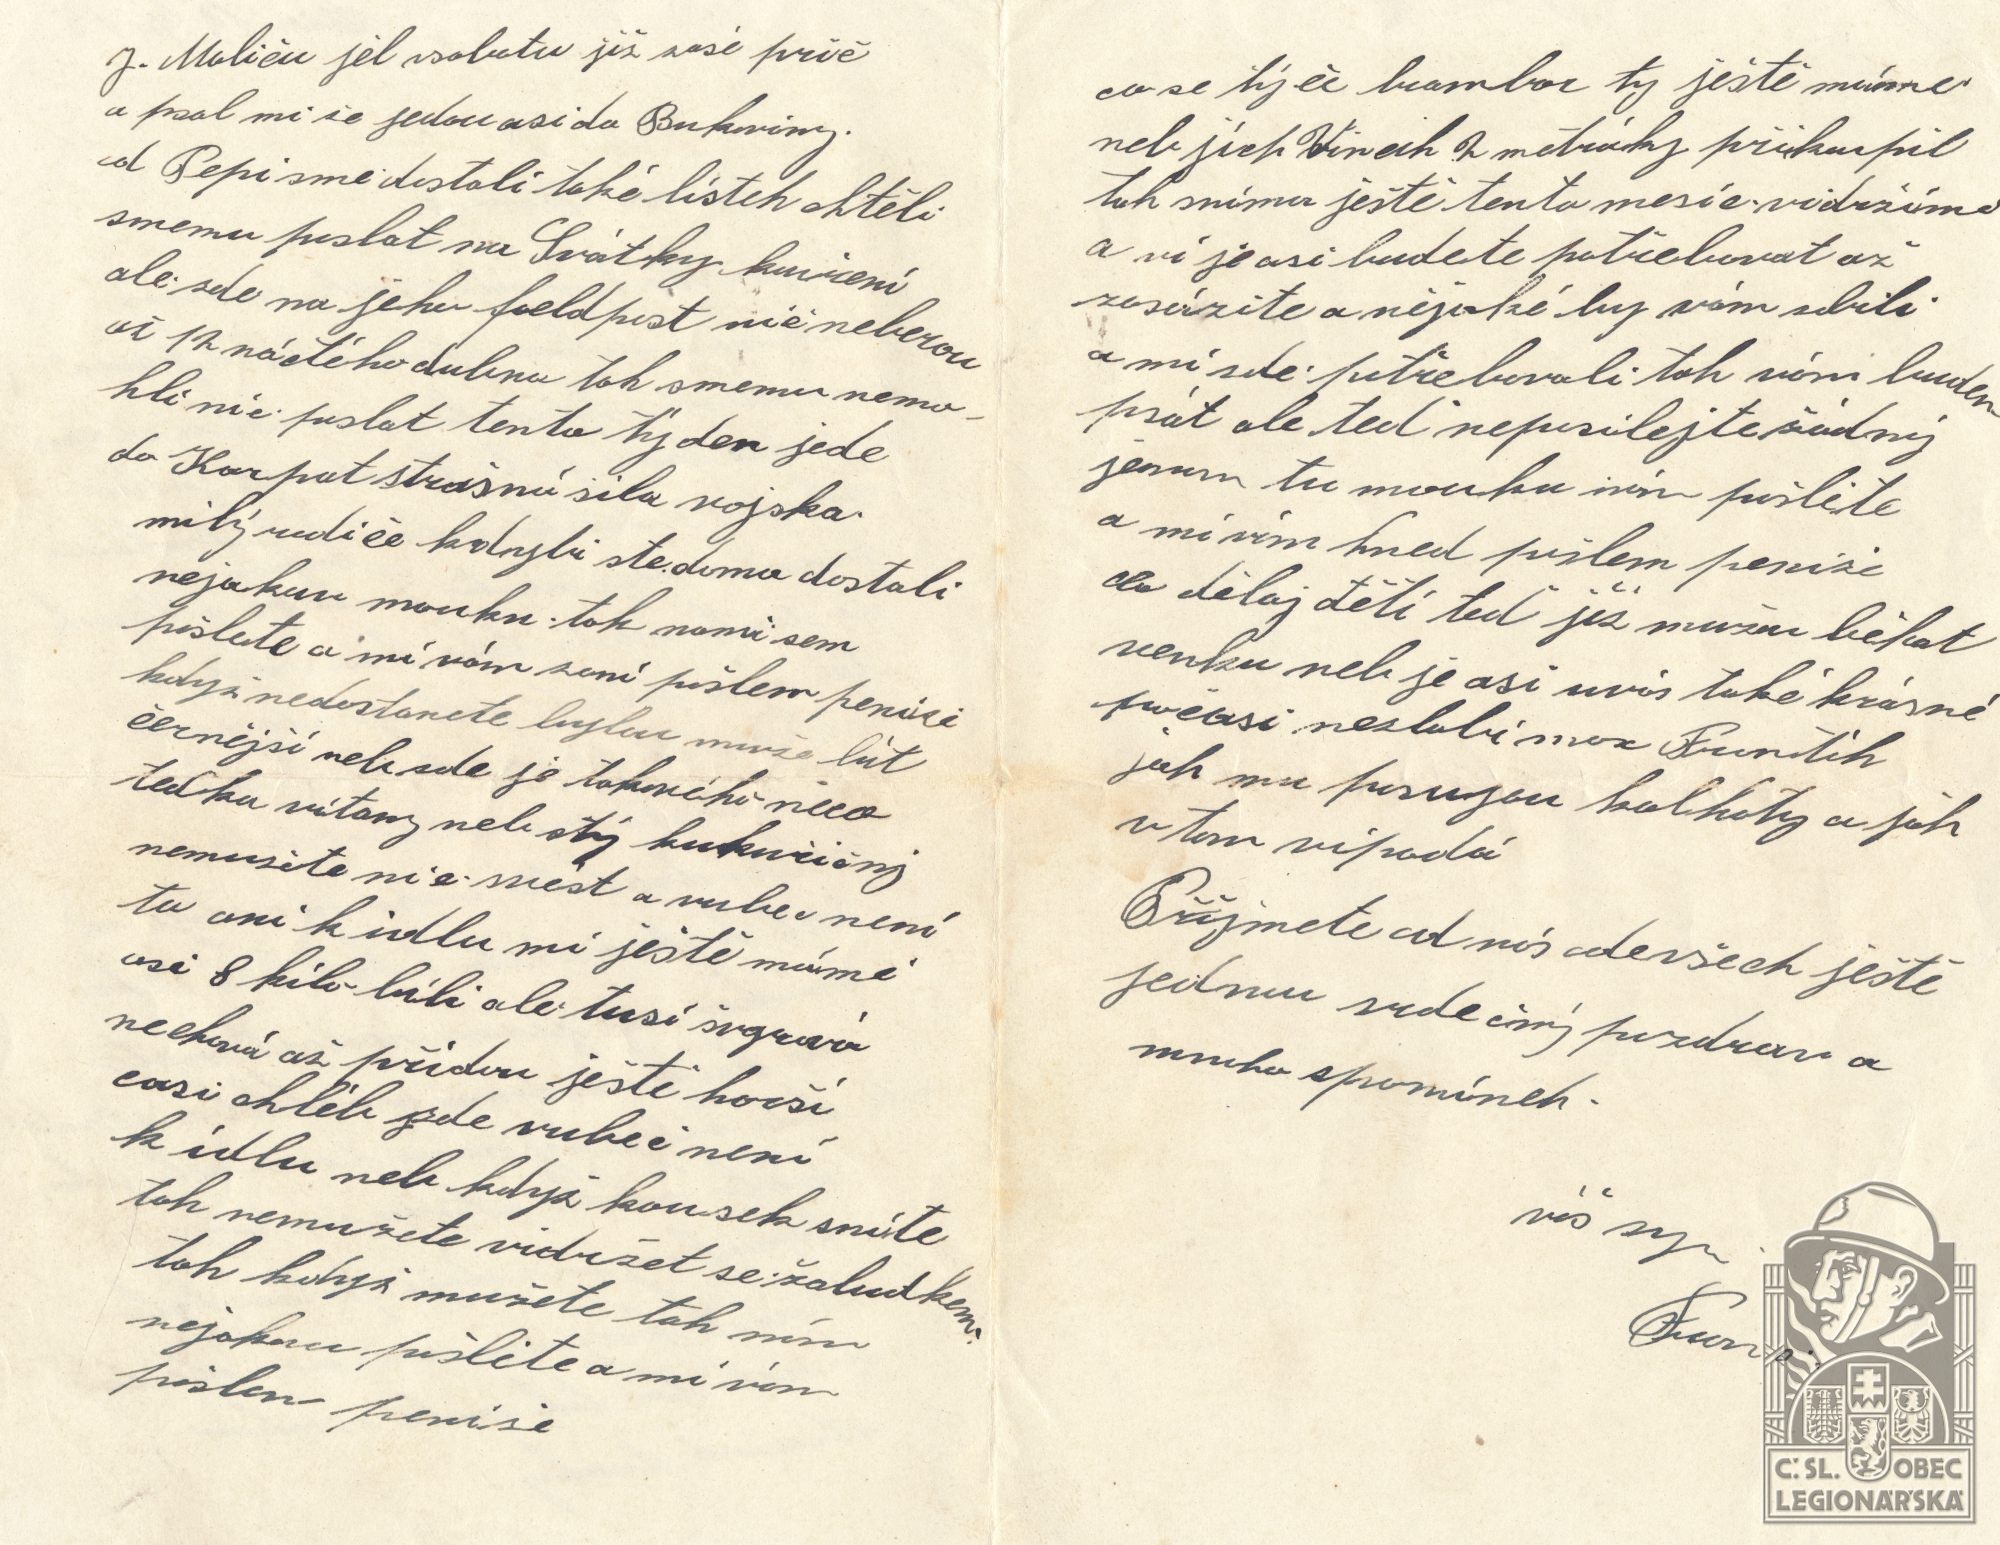 J. Maliču jel vsobotu již zasé prič
a psal mi že jedou asi do Bukoviny.
od Pepi sme dostali také lístek chtěli
smemu poslat na Svátky kuřeni
ale zde na jeho feldpost nič neberou
až 12 náctého dubna tak smemu nemo-
hli nic poslat tento týden jede
do Karpat strašná sila vojska.
milý rodiče kdybi ste doma dostali
nejakou mouku tak nami sem
pošlete a mi vám zani pošlem penize
když nedostanete bylou muže bít
černějši neb zde je takového něco
teďka vítany neb stý kukuřičný
nemusite nic svést a vubec neni
to ani k idlu mi ještě máme
asi 8 kilo bíli ale tusi
nechová až přídou ještě horši
časi chléb zde vubec neni
k idlu neb když kousek sníte
tak nemužete vidržet se žaludkem.
tak když mužete tak nám
nejakou pošlite a mi vám
pošlem penize
co se týče brambor ty ještě máme
neb jich 2 metráky přikoupil
tak snima ještě tento mesic vidržíme
a vi je asi budete potřebovat až
zasázite a nějaké by vám zbili
a mi zde potřebovali tak vám budem
psát ale teď neposilejte žádný
jenom tu mouku nám pošlite
a mi vám hned pošlem penize
co dělaj děti teď již mužou běhat
venku neb je asi uvás také krásné
počasi nezlobi moc Frantik
jak mu pasujou kalhoty a jak
v tom vipadá
Přijmete od nás odevšech ještě
jednou srdečný pozdrav a
mnoho spomínek.
váš syn
C̓.SL. OBEC
LEGIONÁŘSKÁ